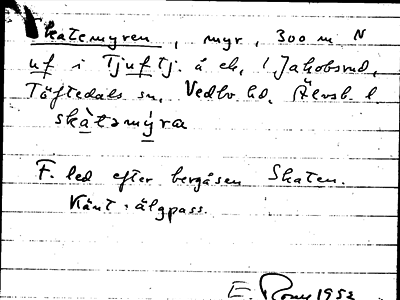 Skatemyren, myr, 300 m N
uf i Tjuftj. å ek, i Jakobsrud,
Töftedals sn, Vedbo hd, Älvsb. l
skàtəmýra
F. led efter bergåsen Skaten.
Känt älgpass.
E. 1952